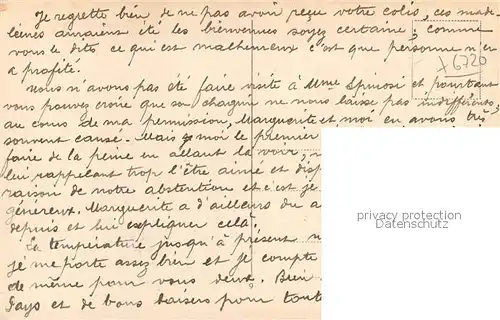 Je regrette bien de ne pas avoir reçu votre colis, ces made
leines auraient été les bienvenues soyez certaine, comme
vous le dites ce qui est malheureux c'est que personne n'en
a profité.
+6720
Nous n'avons pas été faire visite à Mme Spinosi et pourtant
vous pouvez croire que son chagrin ne nous laisse pas indifférents,
au cours de ma permission, Marguerite et moi en avons très
souvent causé. Mais moi le premier
faire de la peine en allant la voir,
lui rappelant trop l'être aimé et disp
raison de notre abstention et c'est je
généreux. Marguerite a d'ailleurs du a
depuis et lui expliquer cela.
privacy protection
Datenschutz
La température jusqu'à présent n
je me porte assez bien et je compte
de même pour vous deux. Bien
Pays et de bons baisers pour toute